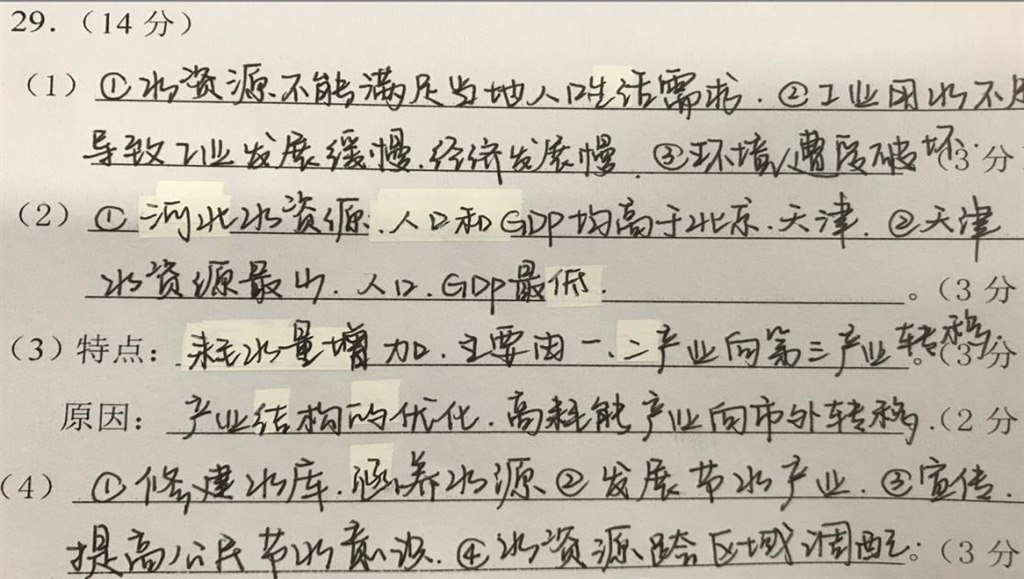 29.（14分）
（1）①水资源不能满足当地人口生活需求.②工业用水不足
导致工业发展缓慢.经济发展慢.③环境遭受破坏.（3分
（2）①河北水资源.人口和GDP均高于北京.天津.②天津
水资源最少.人口.GDP最低.。（3分
（3）特点：耗水量增加.主要由一.二产业向第三产业转移。（3分
原因：产业结构的优化.高耗能产业向市外转移.（2分
（4）①修建水库.涵养水源②发展节水产业.③宣传.
提高公民节水意识.④水资源跨区域调配。（3分